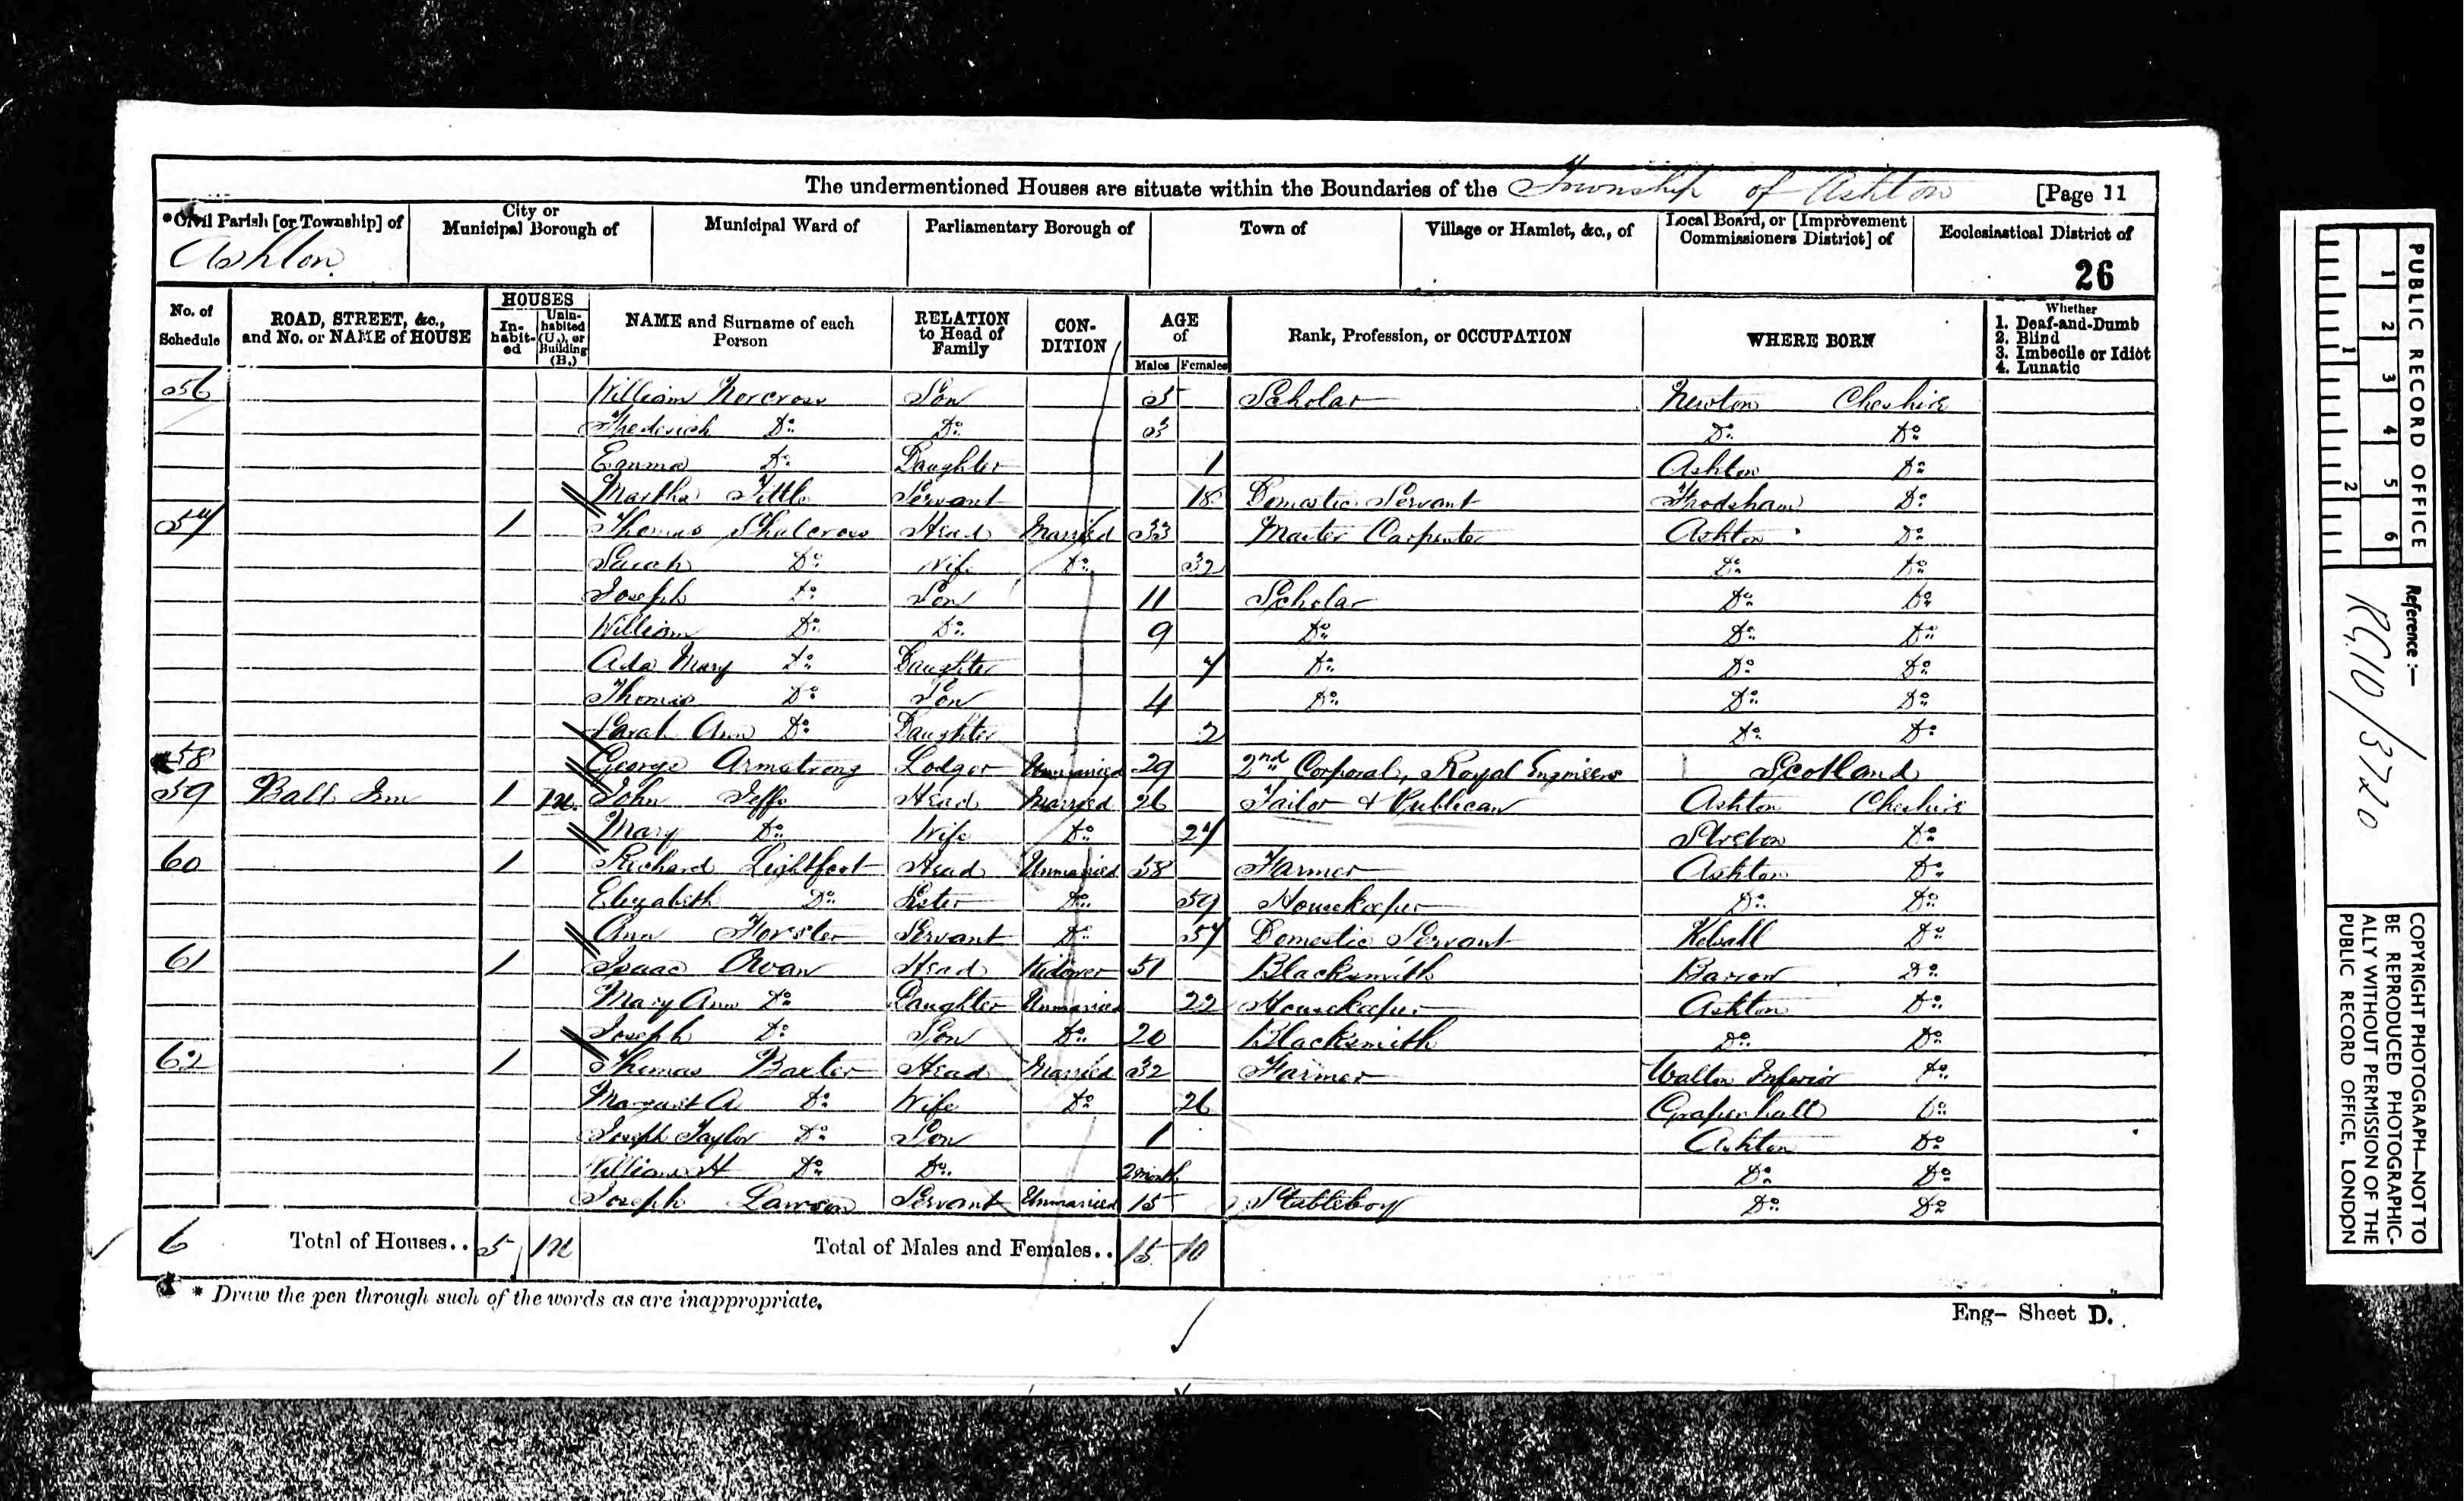 The undermentioned Houses are situate within the Boundaries of the Township of Ashton [Page 11
*Civil Parish [or Township] of City or Municipal Borough of Municipal Ward of Parliamentary Borough of Town of Village or Hamlet, &c., of Local Board, or [Improvement Commissioners District] of Ecclesiastical District of
Ashton 26
No. of Schedule ROAD, STREET, &c., and No. or NAME of HOUSE HOUSES In-habit-ed Unin-habited (U.), or Building (B.) NAME and Surname of each Person RELATION to Head of Family CON-DITION AGE of Males Females Rank, Profession, or OCCUPATION WHERE BORN Whether 1. Deaf-and-Dumb 2. Blind 3. Imbecile or Idiot 4. Lunatic
56 William Norcross Son 5 Scholar Newton Cheshire
Frederick Do. Do. 3 Do. Do.
Emma Do. Daughter 1 Ashton Do.
Martha Tittle Servant 18 Domestic Servant Frodsham Do.
57 1 Thomas Shalcross Head Married 33 Master Carpenter Ashton Do.
Sarah Do. Wife Do. 32 Do. Do.
Joseph Do. Son 11 Scholar Do. Do.
William Do. Do. 9 Do. Do. Do.
Ada Mary Do. Daughter 7 Do. Do. Do.
Thomas Do. Son 4 Do. Do. Do.
Sarah Ann Do. Daughter 2 Do. Do.
58 George Armstrong Lodger Unmarried 29 2nd Corporal, Royal Engineers Scotland
59 Ball Inn 1 John Jeffs Head Married 26 Tailor & Publican Ashton Cheshire
Mary Do. Wife Do. 27 Stretton Do.
60 1 Richard Lightfoot Head Unmarried 58 Farmer Ashton Do.
Elizabeth Do. Sister Do. 59 Housekeeper Do. Do.
Ann Forster Servant Do. 57 Domestic Servant Kelsall Do.
61 1 Isaac Head Widower 51 Blacksmith Barrow Do.
Mary Ann Do. Daughter Unmarried 22 Housekeeper Ashton Do.
Joseph Do. Son Do. 20 Blacksmith Do. Do.
62 1 Thomas Baxter Head Married 32 Farmer Walton Inferior Do.
Margaret A Do. Wife Do. 26 Grapenhall Do.
Joseph Taylor Do. Son 1 Ashton Do.
William H Do. Do. 2 months Do. Do.
Joseph Lawson Servant Unmarried 15 Stableboy Do. Do.
6 Total of Houses.. 5 Total of Males and Females.. 15 10
* Draw the pen through such of the words as are inappropriate.
Eng- Sheet D.
PUBLIC RECORD OFFICE
1 2 3 4 5 6
1 2
Reference :-
RG10/3720
COPYRIGHT PHOTOGRAPH—NOT TO
BE REPRODUCED PHOTOGRAPHIC-
ALLY WITHOUT PERMISSION OF THE
PUBLIC RECORD OFFICE, LONDON